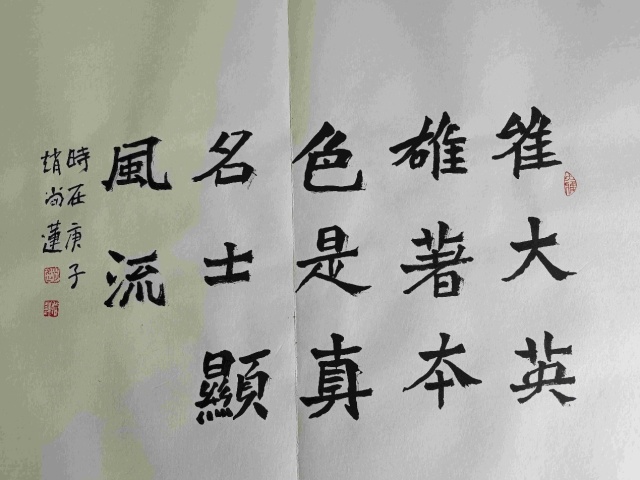 隹大英
雄著本
色是真
名士顯
風流
時在庚子
趙尚蓮